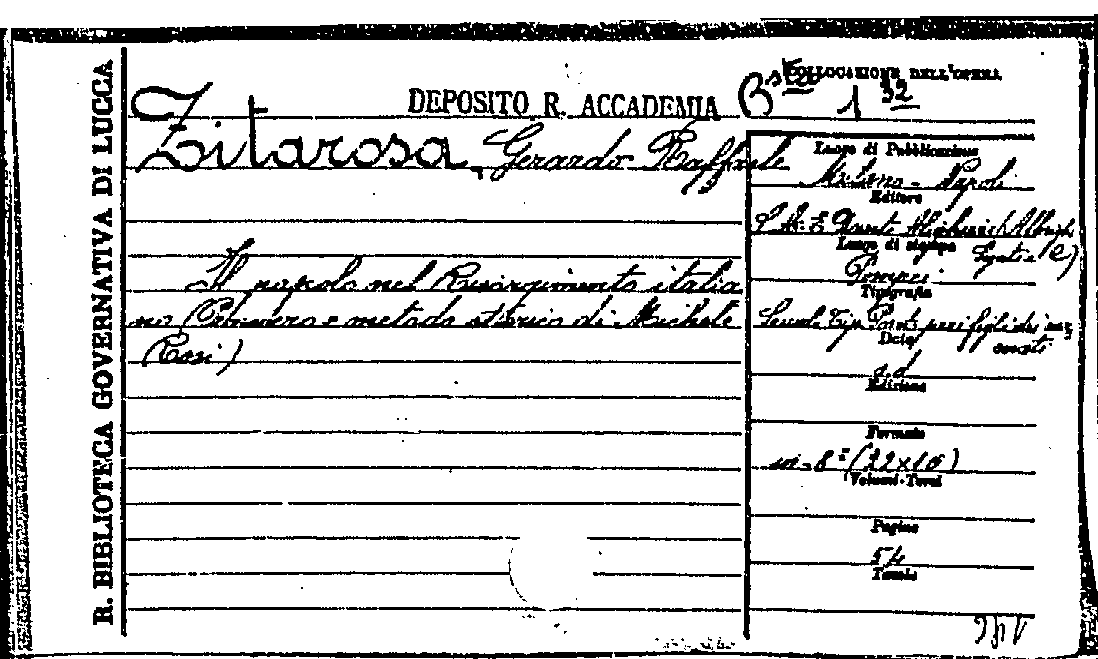 R. BIBLIOTECA GOVERNATIVA DI LUCCA
DEPOSITO R. ACCADEMIA
COLLOCAZIONE DELL'OPERA
Bsta 1 32
Zitarosa, Gerardo Raffaele
Il popolo nel Risorgimento italia
no (Pensiero e metodo storico di Michele
Rosi)
Luogo di Pubblicazione
Milano - Napoli
Editore
S. A. E. Dante Alighieri (Albrighi
Segati e C)
Luogo di stampa
Pompei
Tipografia
Scuola Tip. Pont. pei figli dei
Data
s.d.
Edizione
Formato
in-8° (22x16)
Volumi-Tomi
Pagine
54
Tavole